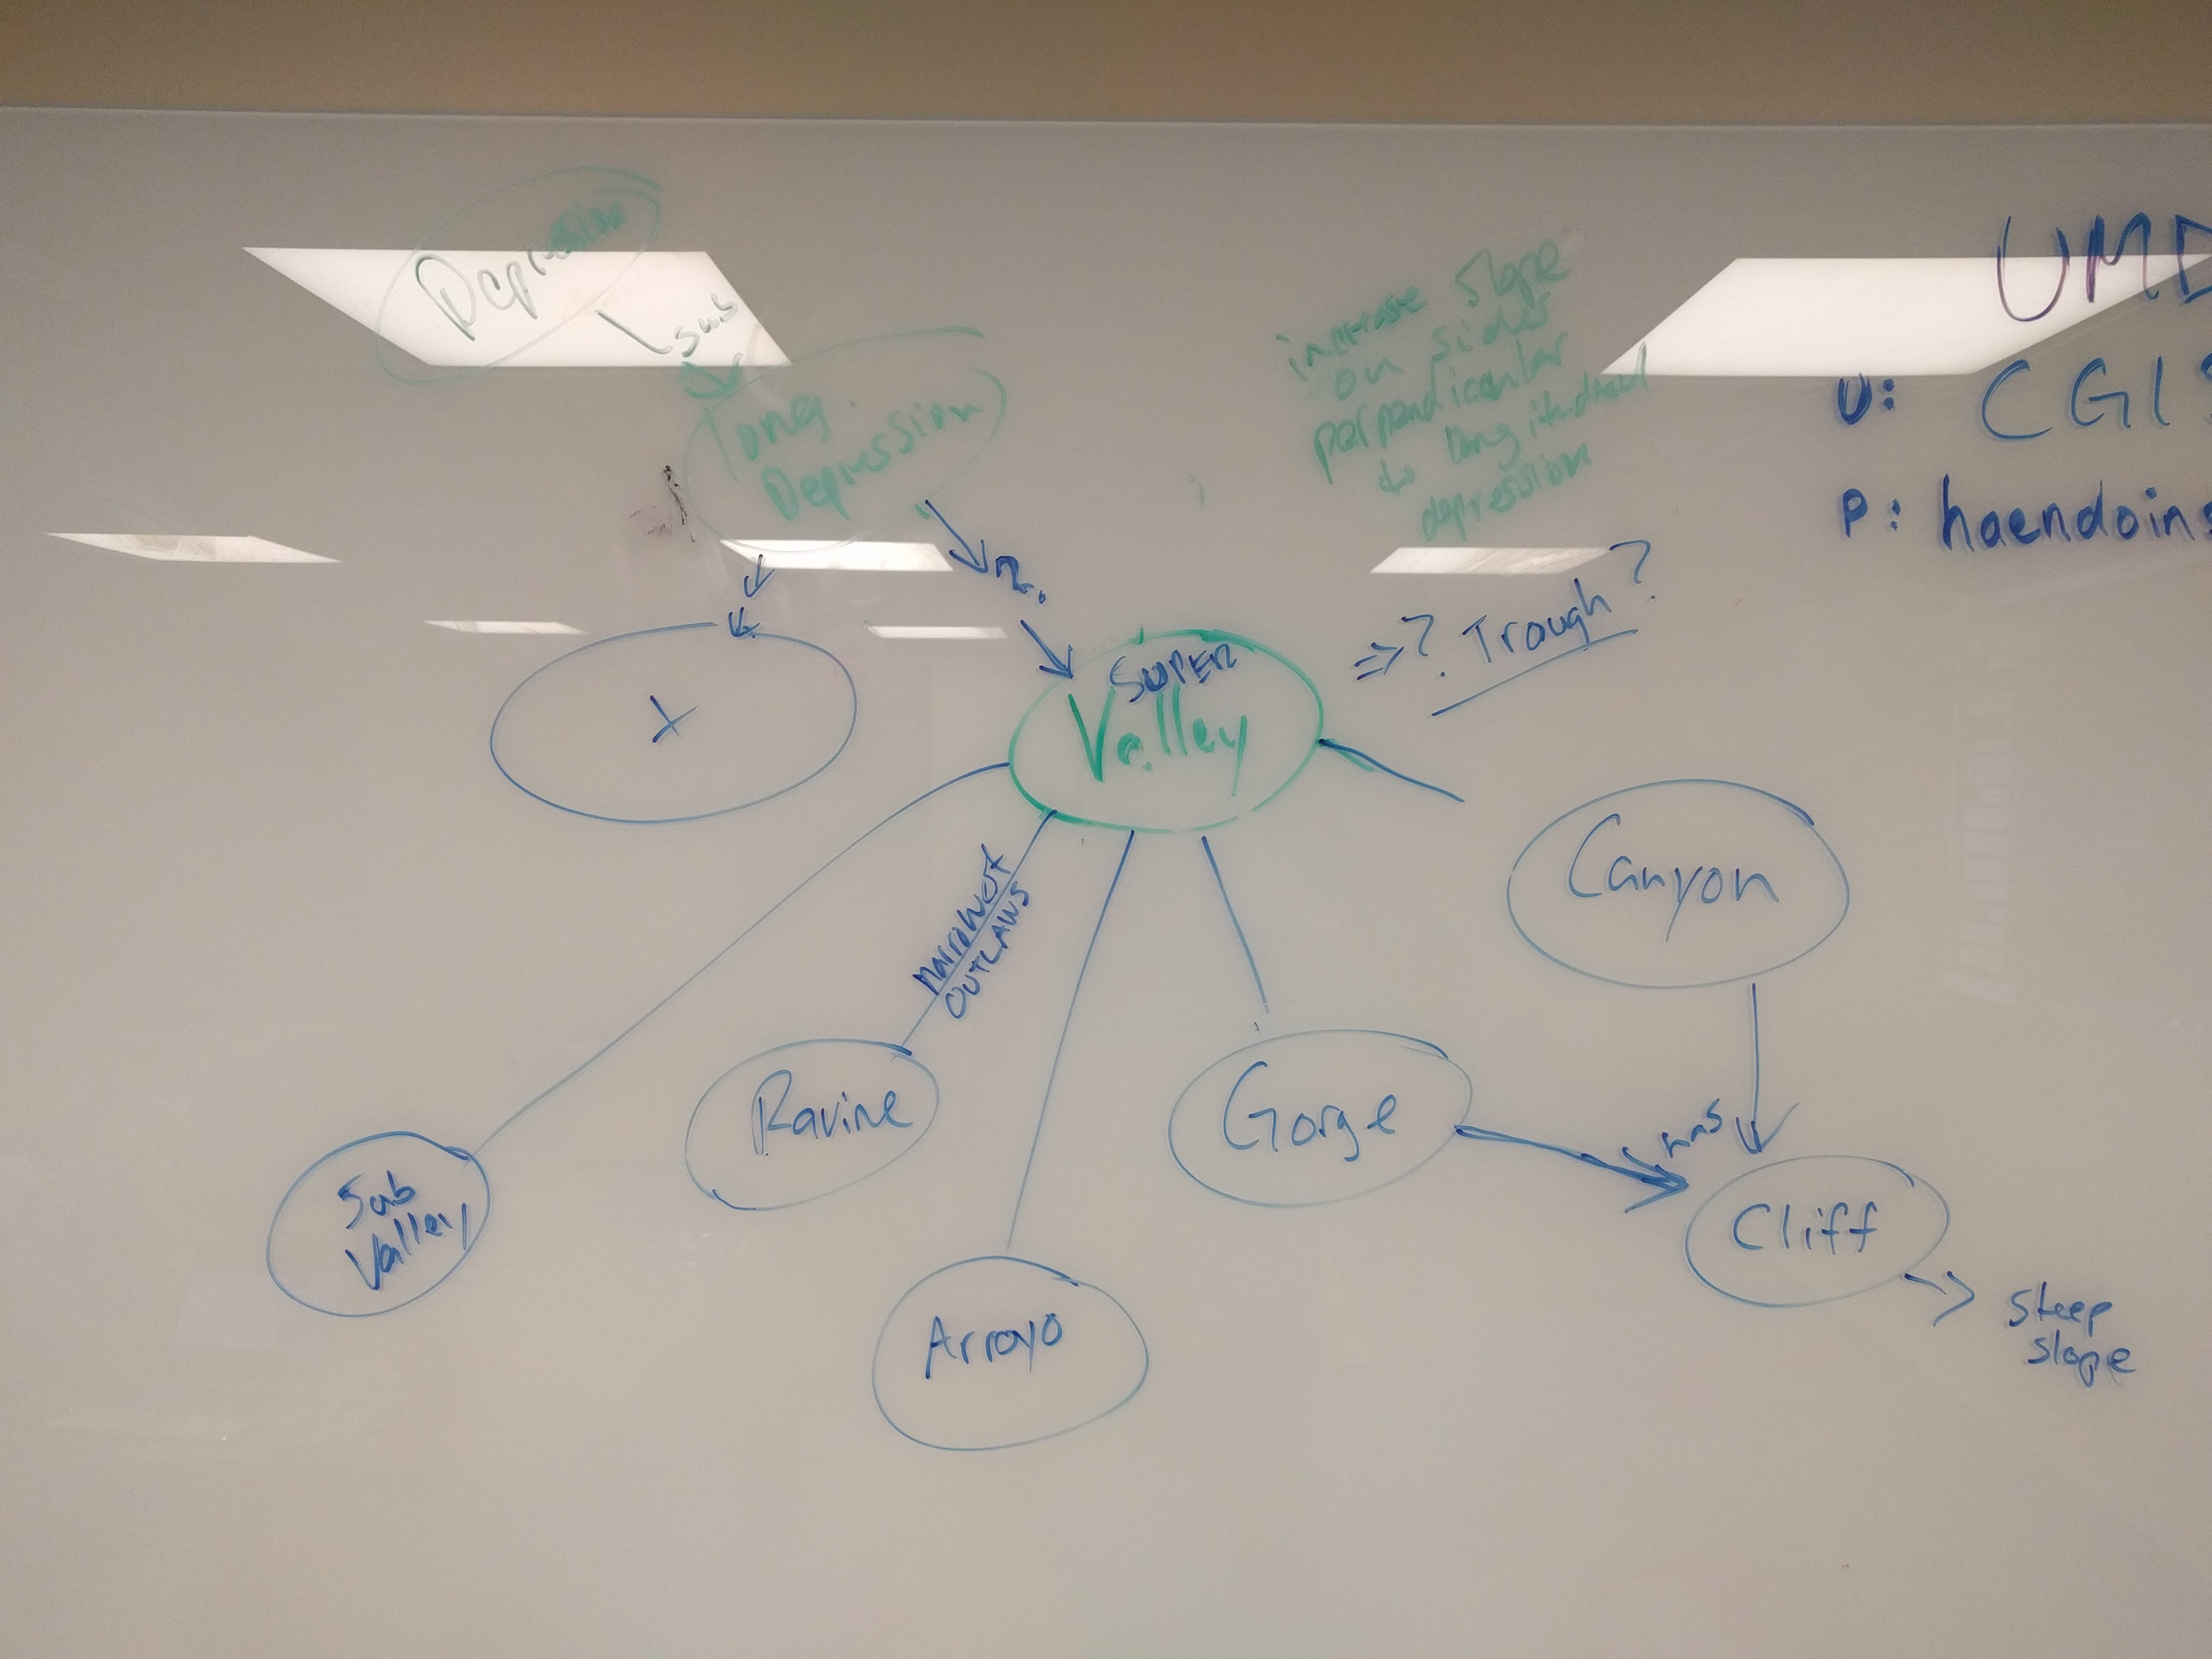 Depression
sub
long
Depression
increase slope
on sides
perpendicular
to longitudinal
depression
UMD
U: CGIS
P: haendoins
?
=>? Trough?
SUPER
Valley
X
Canyon
OUTLAWS
Ravine
Gorge
has
Cliff
Sub
Valley
Arroyo
Steep
slope